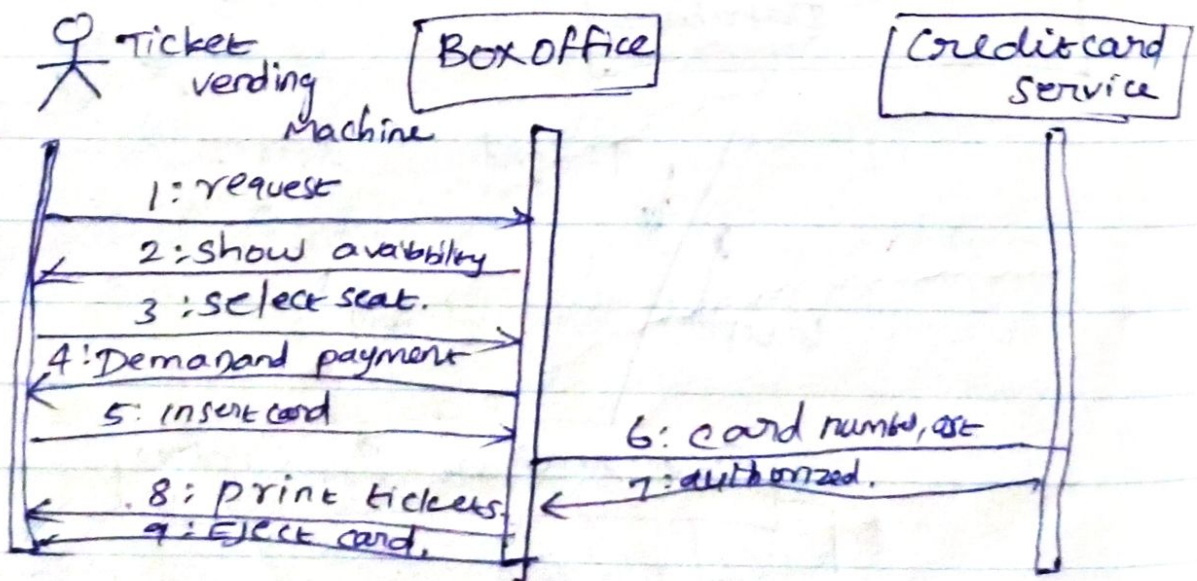 Ticket
vending
Machine
Box office
Credit card
service
1: request
2: show
3: select seat.
4: Demanand payment
5: insert card
6: card
7: authorized.
8: print tickets.
9: Eject card.